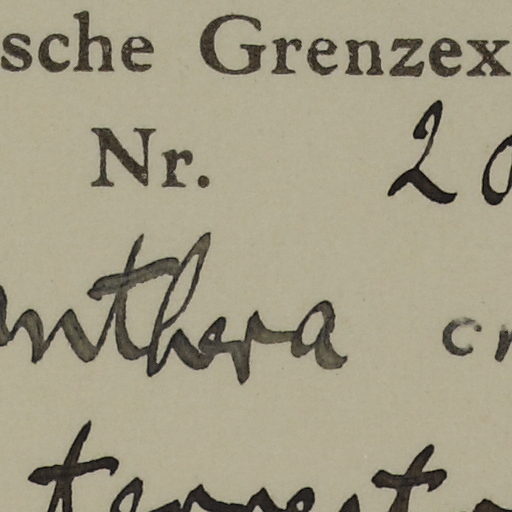 sche Grenzex
Nr. 20
anthera cr
terrest